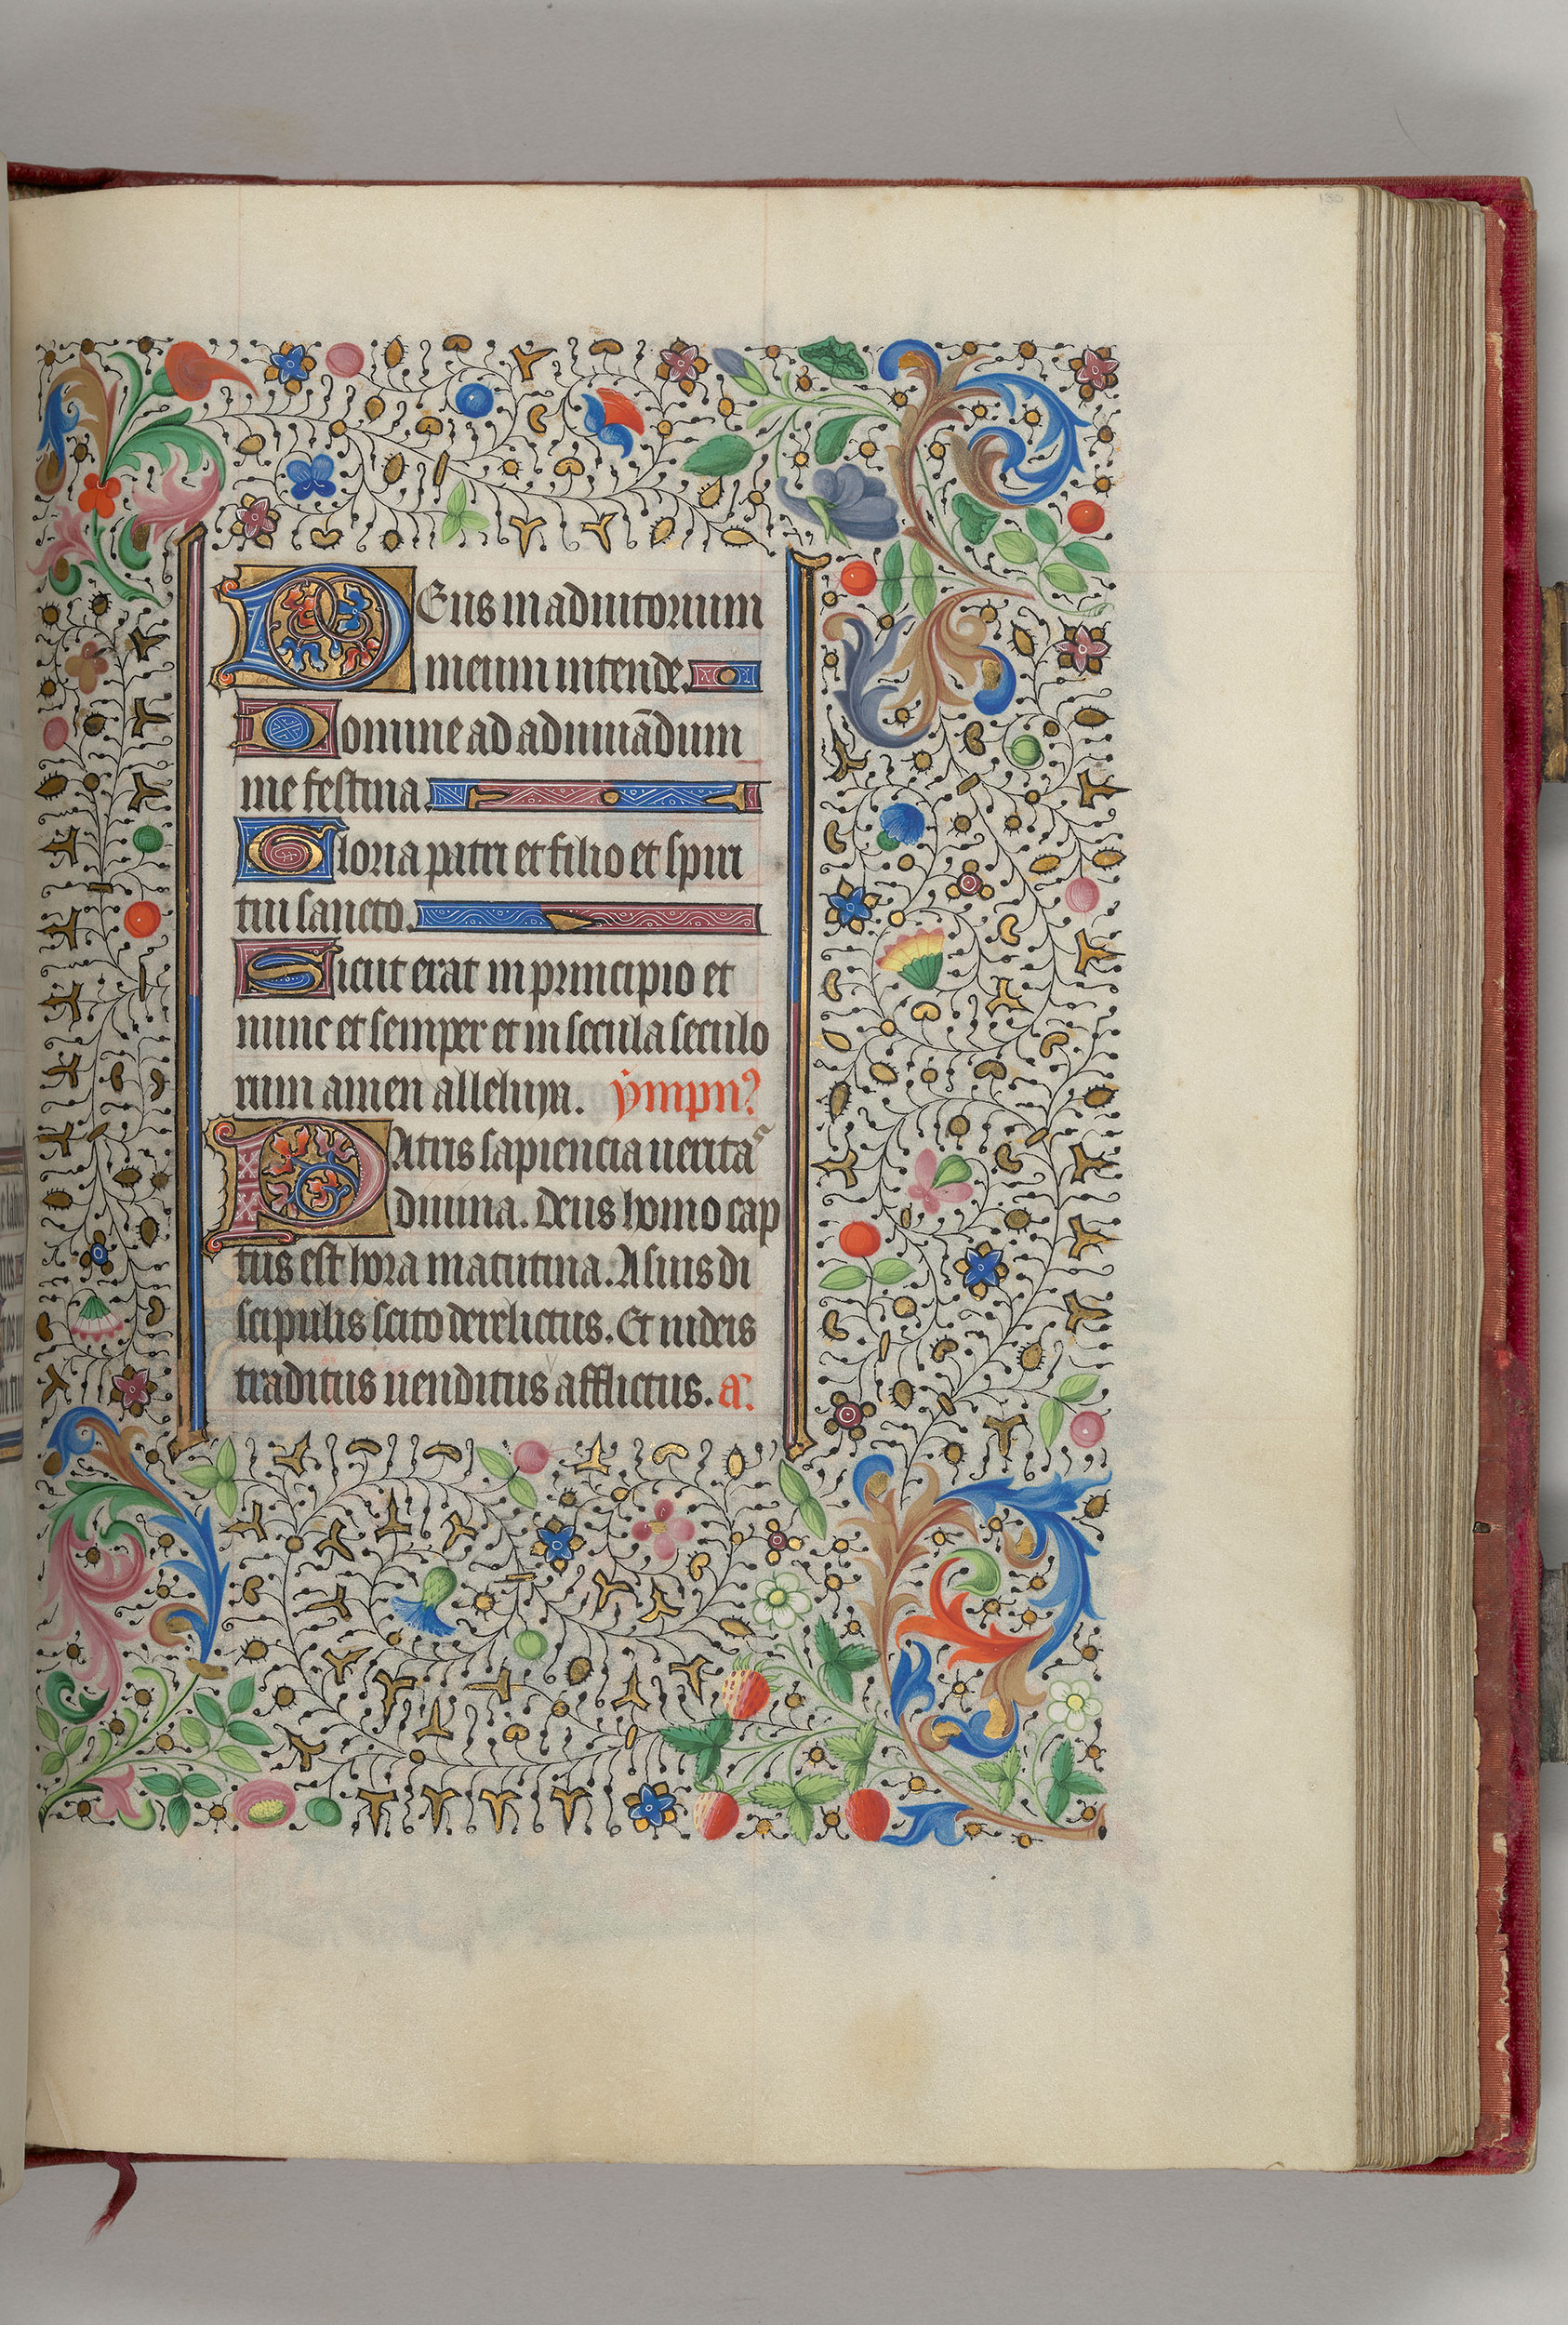 130
Deus in adiutorium
meum intende.
Domine ad adiuuādum
me festina.
Gloria patri et filio et spiri
tui sancto.
Sicut erat in principio et
nunc et semper et in secula seculo
rum amen alleluya. ẏmpnꝰ
Patris sapiencia ueritaˢ
diuina. Deus homo cap
tus est hora matutina. A suis di
scipulis scito derelictus. Et iudeis
traditus uenditus afflictus. a.